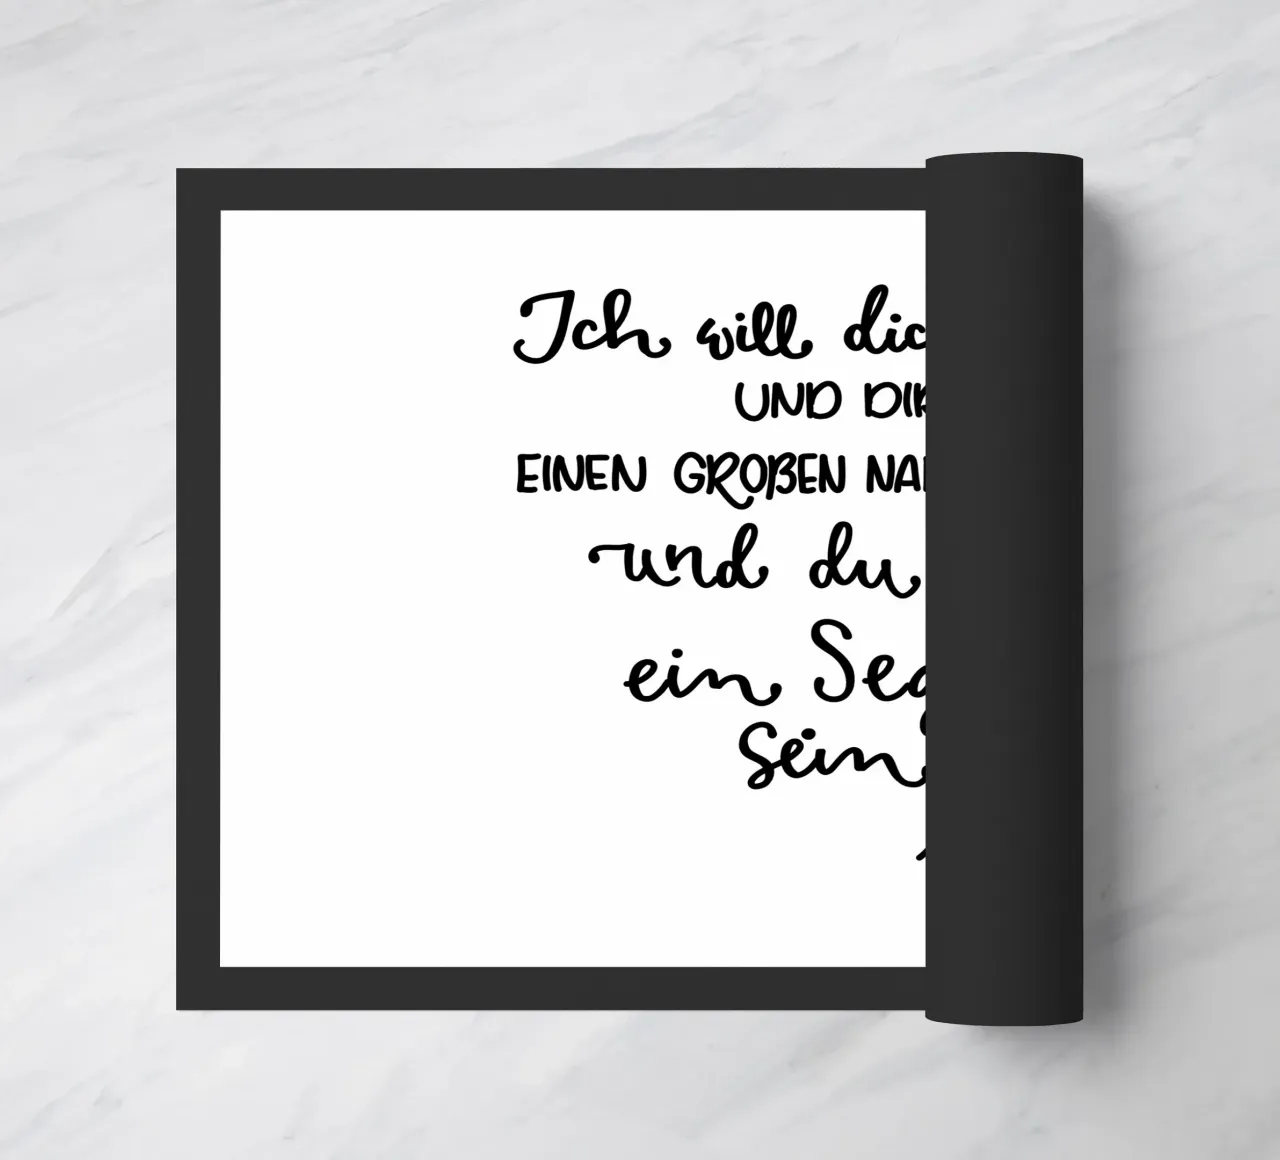 Ich will dic
UND DIR
EINEN GROßEN NA
und du
ein Seg
sein